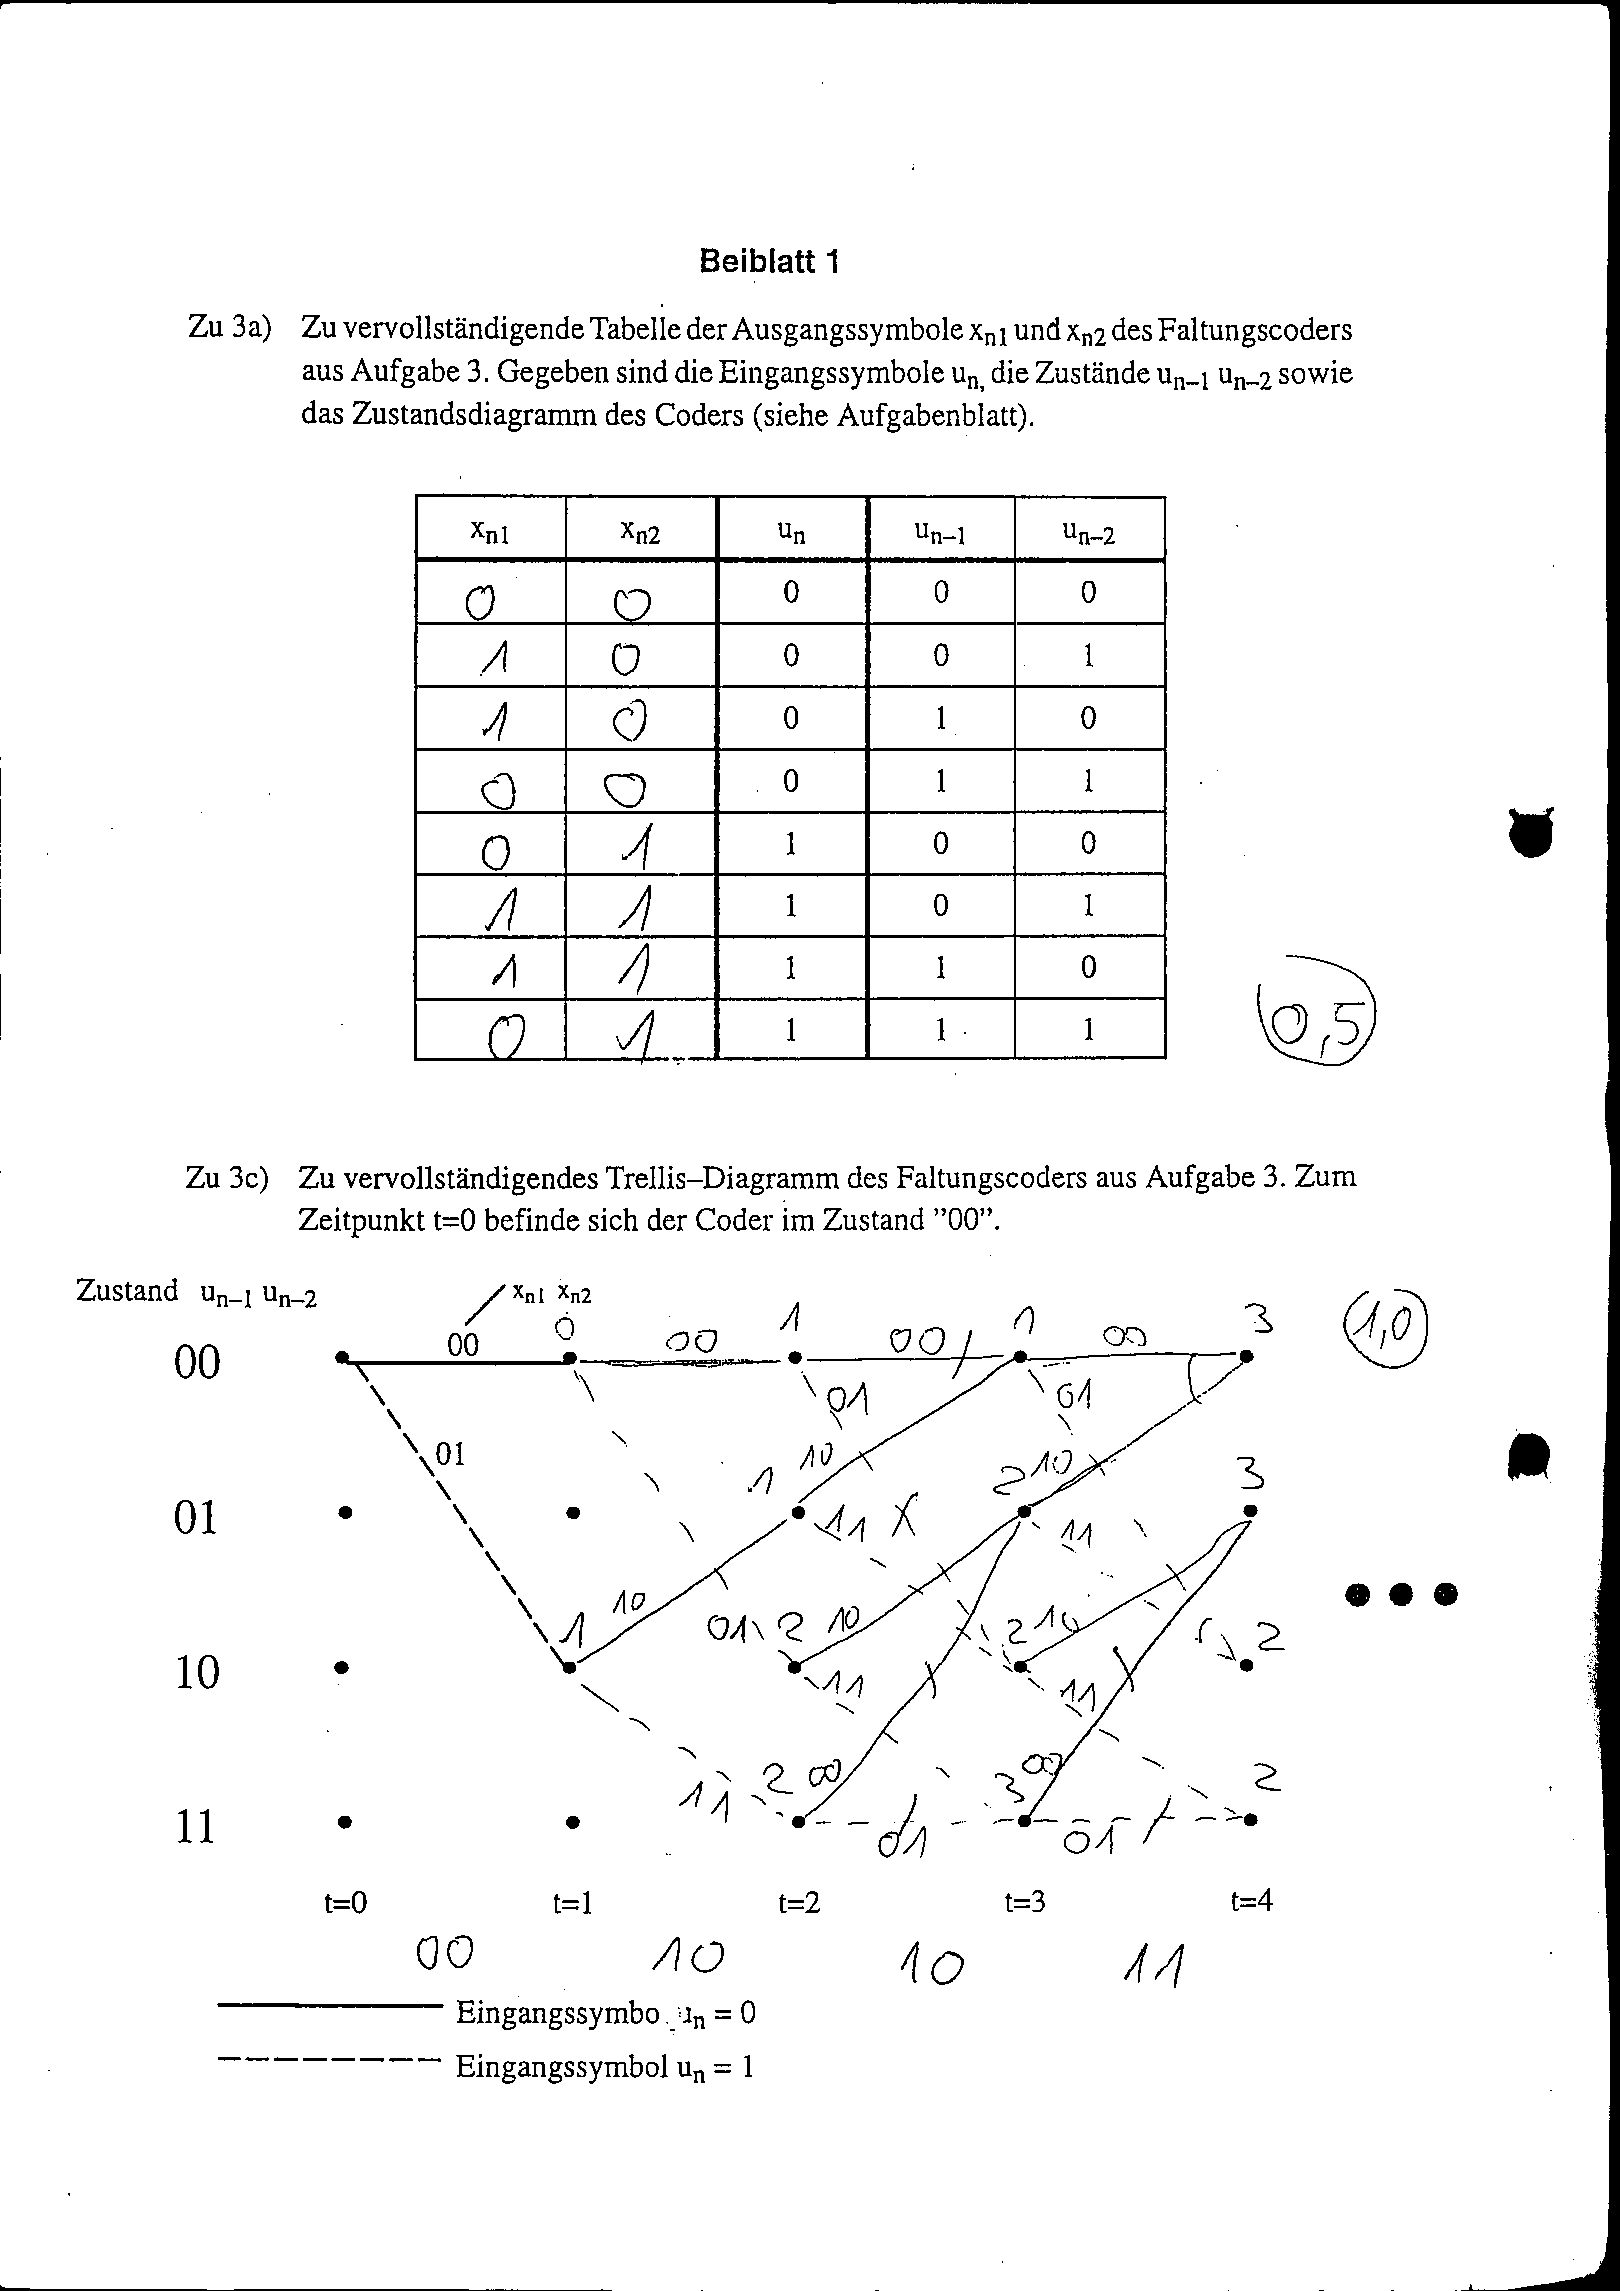 Beiblatt 1
Zu 3a) Zu vervollständigende Tabelle der Ausgangssymbole xn1 und xn2 des Faltungscoders
aus Aufgabe 3. Gegeben sind die Eingangssymbole un, die Zustände un–1 un–2 sowie
das Zustandsdiagramm des Coders (siehe Aufgabenblatt).
xn1 xn2 un un–1 un–2
0 0 0 0 0
1 0 0 0 1
1 0 0 1 0
0 0 0 1 1
0 1 1 0 0
1 1 1 0 1
1 1 1 1 0
0 1 1 1 1
0,5
Zu 3c) Zu vervollständigendes Trellis–Diagramm des Faltungscoders aus Aufgabe 3. Zum
Zeitpunkt t=0 befinde sich der Coder im Zustand ”00”.
Zustand un–1 un–2 xn1 xn2
0 1 1 3 1,0
00 00 00 00 00
01 01
01 10 10
1 2 3
01 11 11
1 10 01 2 10 2 10 2
10 11 11
11 2 00 3 00 2
11 01 01
t=0 t=1 t=2 t=3 t=4
00 10 10 11
Eingangssymbo un = 0
Eingangssymbol un = 1